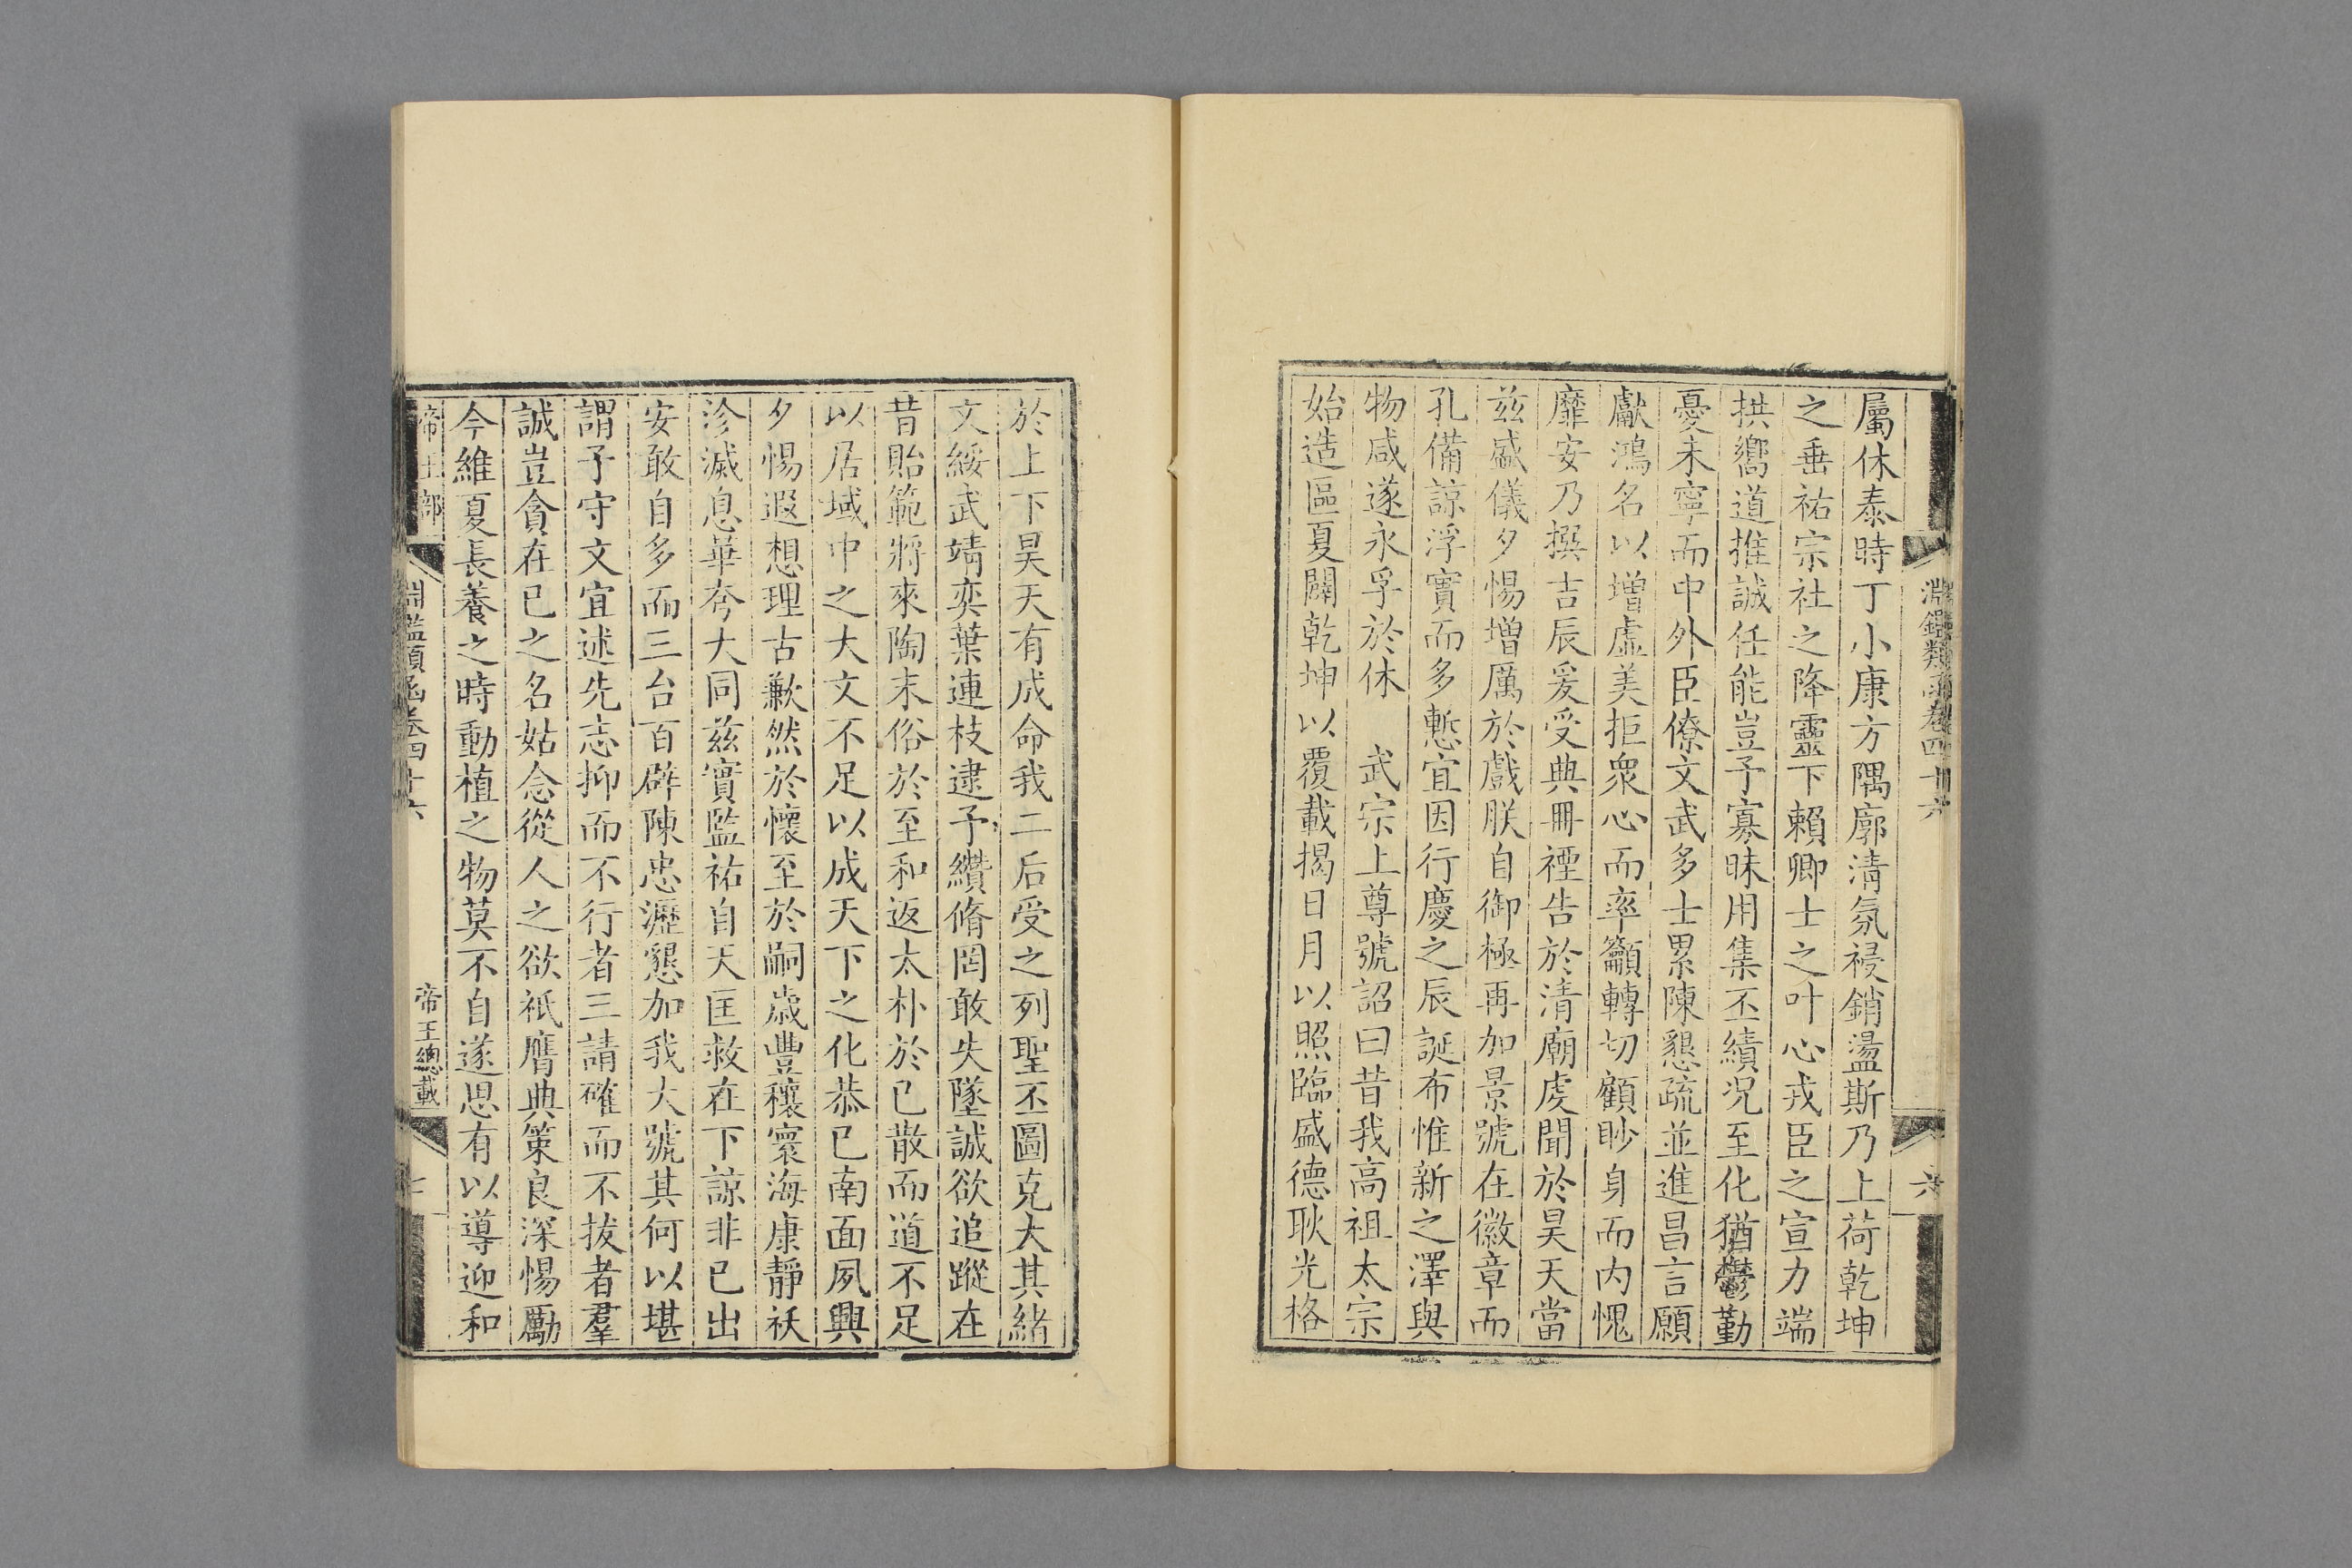 淵鑑類函卷四十六
六
屬休泰時丁小康方隅廓清氛祲銷盪斯乃上荷乾坤
之垂祐宗社之降靈下賴卿士之叶心戎臣之宣力端
拱嚮道推誠任能豈予寡昧用集丕績況至化猶鬱勤
憂未寧而中外臣僚文武多士累陳懇疏並進昌言願
獻鴻名以增虛美拒衆心而率籲轉切顧眇身而內愧
靡安乃撰吉辰爰受典冊禋告於清廟虔聞於昊天當
茲盛儀夕惕增厲於戲朕自御極再加景號在徽章而
孔備諒浮實而多慙宜因行慶之辰誕布惟新之澤與
物咸遂永孚於休　武宗上尊號詔曰昔我高祖太宗
始造區夏闢乾坤以覆載揭日月以照臨盛德耿光格
於上下昊天有成命我二后受之列聖丕圖克大其緒
文綏武靖奕葉連枝逮予纘脩罔敢失墜誠欲追蹤在
昔貽範將來陶末俗於至和返太朴於已散而道不足
以居域中之大文不足以成天下之化恭已南面夙興
夕惕遐想理古歉然於懷至於嗣歲豐穰寰海康靜祅
沴滅息華夸大同茲實監祐自天匡救在下諒非已出
安敢自多而三台百辟陳忠瀝懇加我大號其何以堪
謂予守文宜述先志抑而不行者三請確而不拔者羣
誠豈貪在已之名姑念從人之欲祇膺典策良深惕勵
今維夏長養之時動植之物莫不自遂思有以導迎和
帝王部
淵鑑類函卷四十六
帝王總載
七